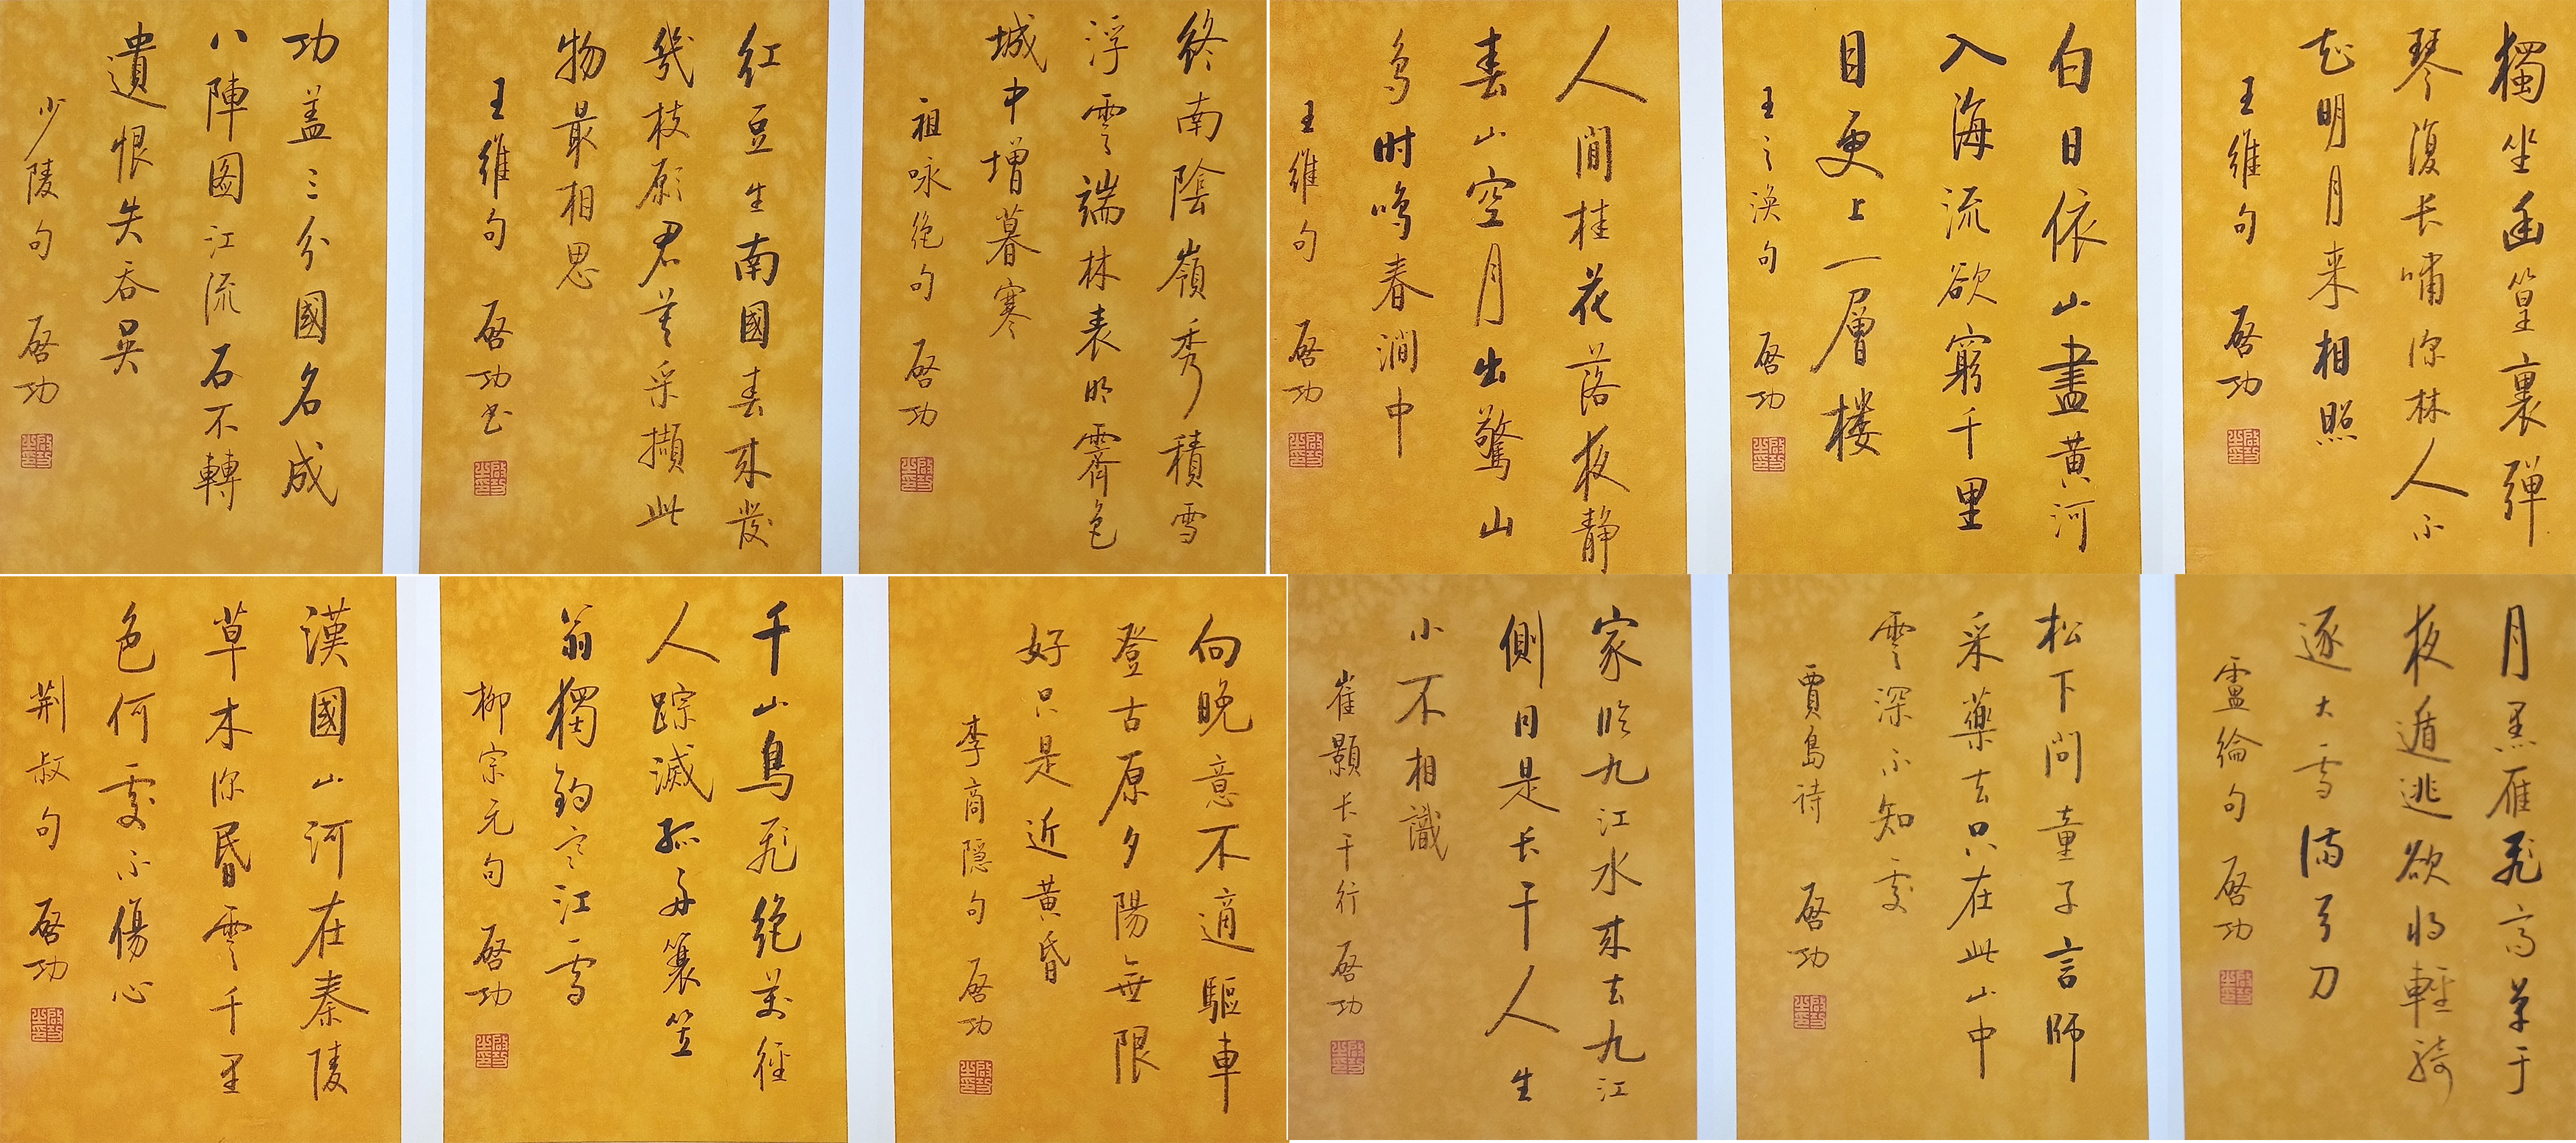 功盖三分國名成
八陣图江流石不轉
遺恨失吞吳
少陵句 啓功
红豆生南國春來發
幾枝願君莫采擷此
物最相思
王維句 啓功书
終南陰嶺秀積雪
浮雲端林表明霽色
城中增暮寒
祖咏绝句 啓功
人閒桂花落夜静
春山空月出驚山
鸟时鸣春澗中
王維句 啓功
白日依山盡黄河
入海流欲窮千里
目更上一層楼
王之涣句 啓功
獨坐幽篁裏彈
琴復长嘯深林人不
知明月来相照
王維句 啓功
漢國山河在秦陵
草木深昏雲千里
色何處不傷心
荆叔句 啓功
千山鳥飛绝萬徑
人踪滅孤舟簑笠
翁獨釣寒江雪
柳宗元句 啓功
向晚意不適驅車
登古原夕陽無限
好只是近黄昏
李商隱句 啓功
家临九江水來去九江
側同是长干人生
小不相識
崔顥长干行 啓功
松下问童子言師
采藥去只在此山中
雲深不知處
賈島诗 啓功
月黑雁飛高單于
夜遁逃欲将輕騎
逐大雪满弓刀
盧綸句 啓功